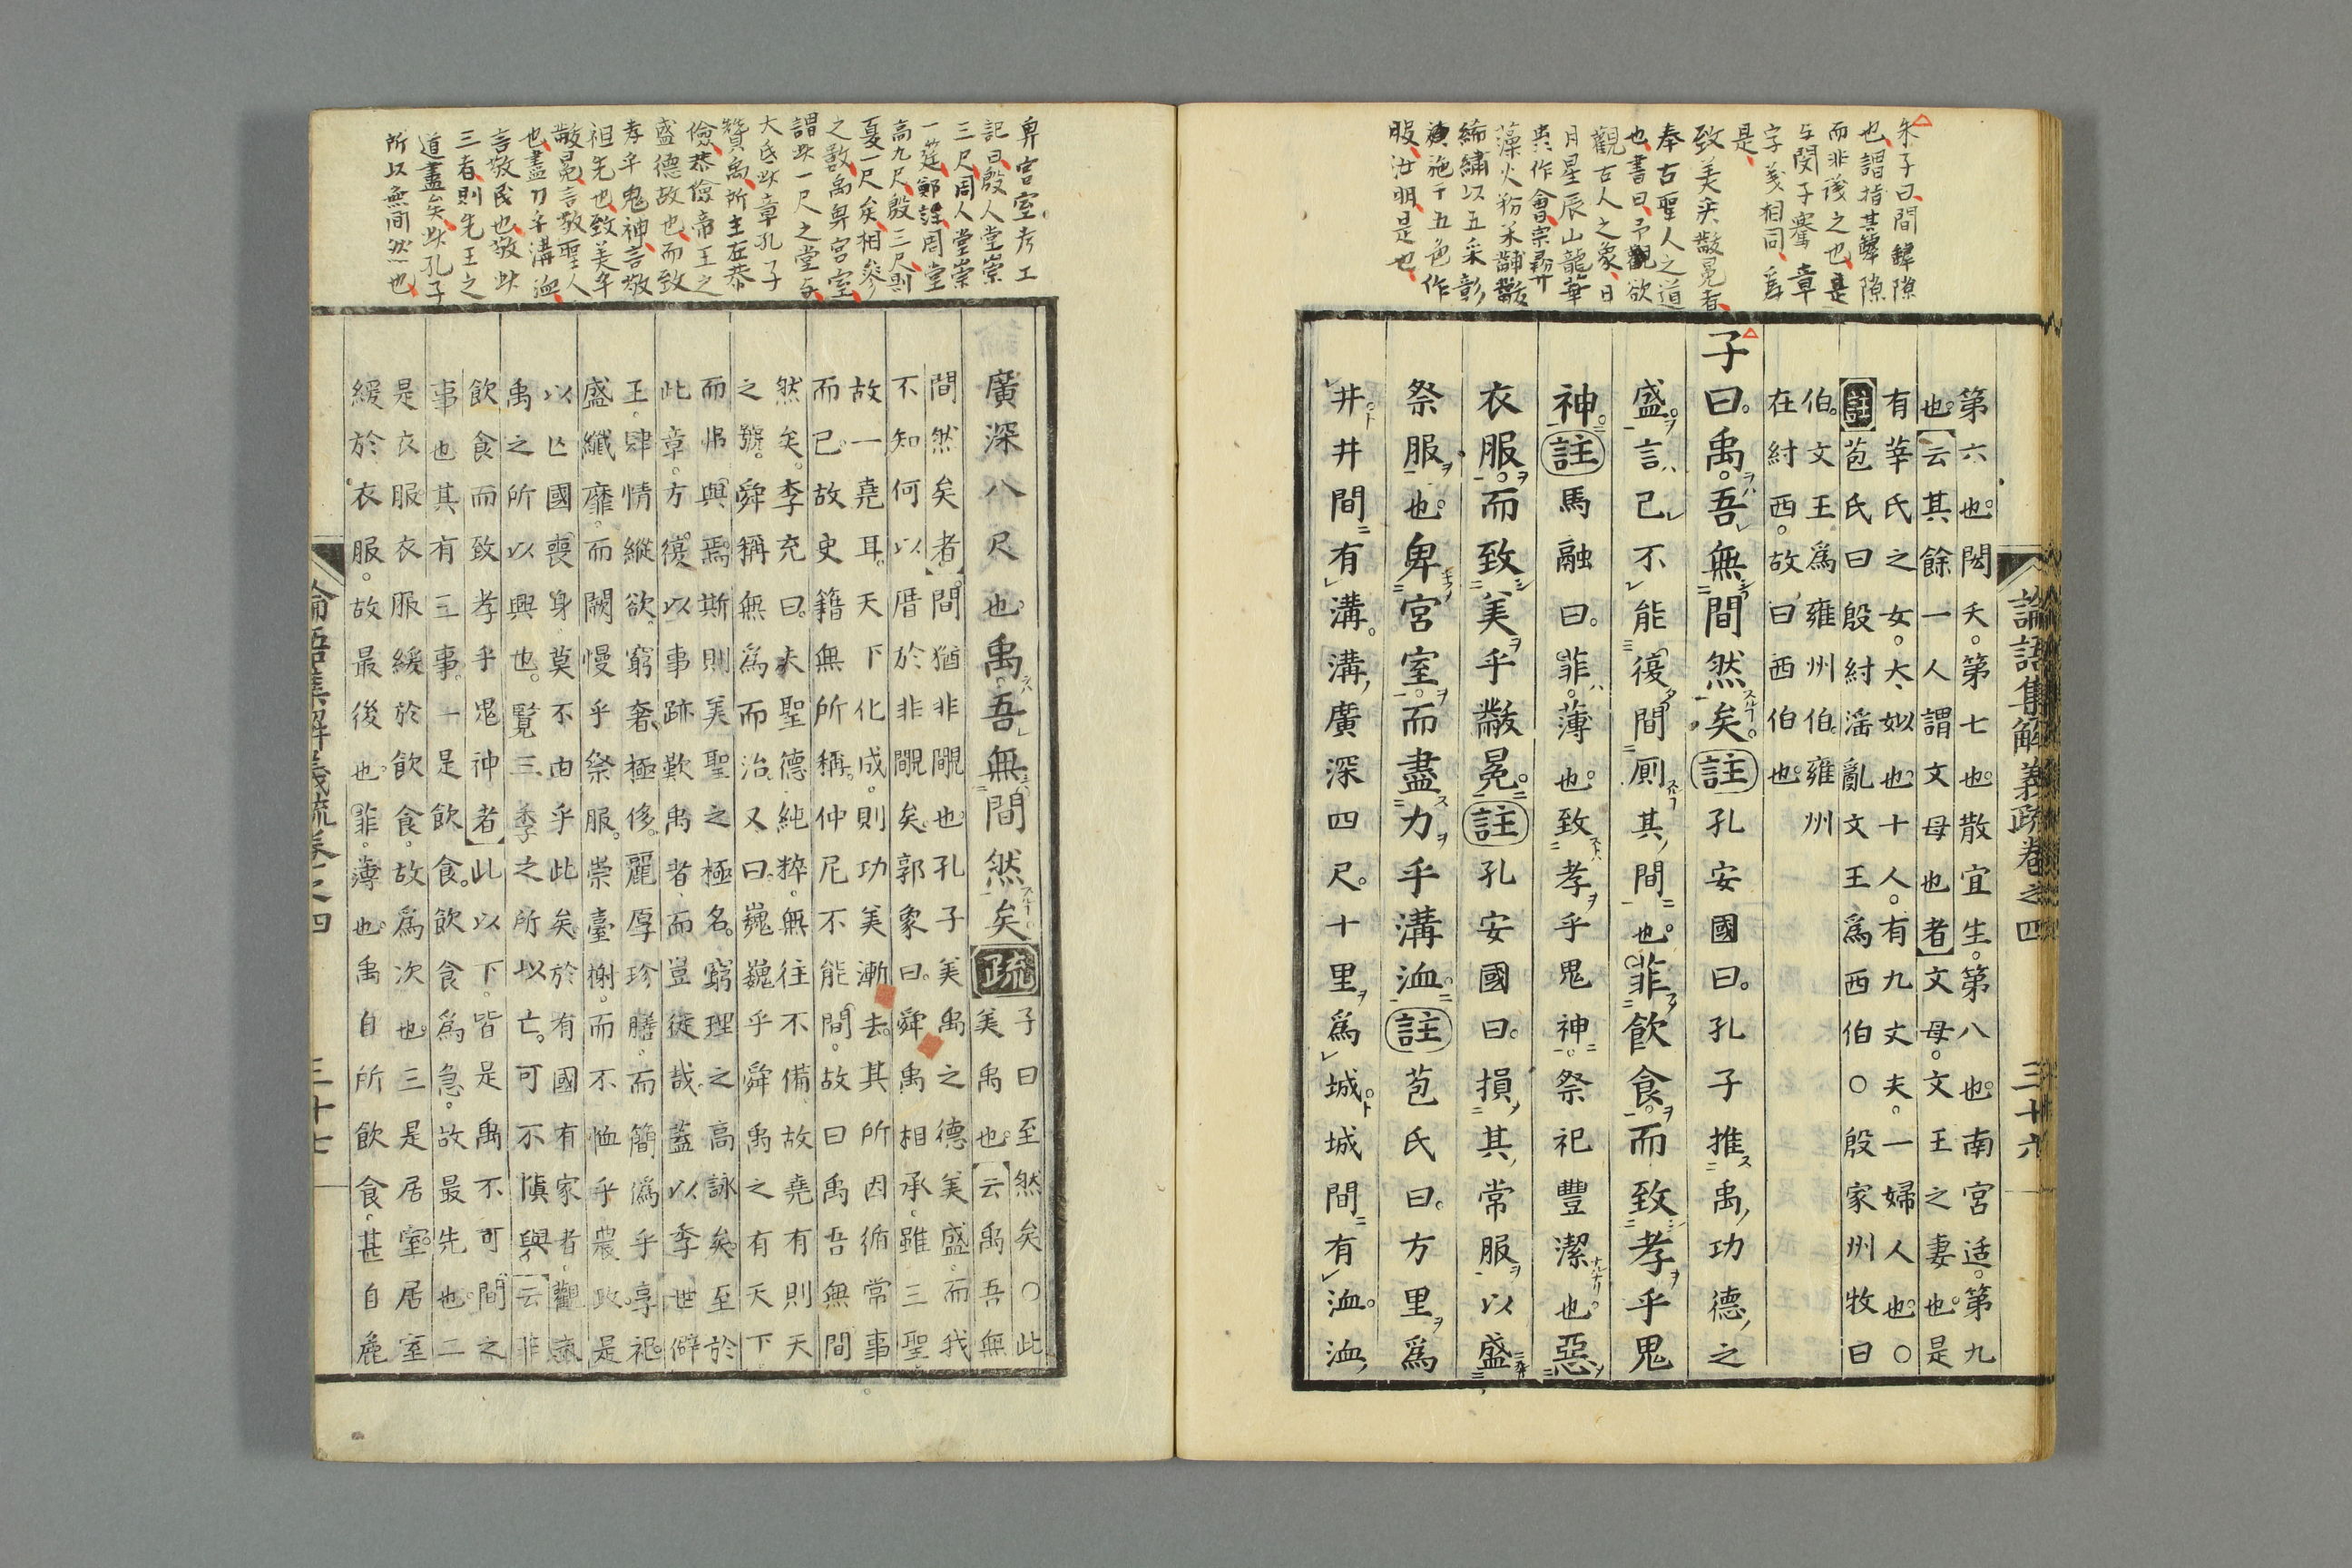 朱子曰間罅隙
也謂指其罅隙
而非議之也是
与閔子騫章
字義相同
是
致美乎黻冕者
奉古聖人之道
也書曰予觀欲
觀古人之象日
月星辰山龍華
虫作會宗彛
藻火粉米黼黻
絺繡以五采彰
施于五色作
服汝明是也
第六也閎夭第七也散宜生第八也南宮适第九
也云其餘一人謂文母也者文母文王之妻也是
有莘氏之女大姒也十人有九丈夫一婦人也〇
註苞氏曰殷紂滛亂文王爲西伯〇殷家州牧曰
伯文王爲雍州伯雍州
在紂西故曰西伯也
子曰禹吾無間然矣註孔安國曰孔子推禹功德之
盛言己不能復間厠其間也菲飮食而致孝乎鬼
神註馬融曰菲薄也致孝乎鬼神祭祀豐潔也惡
衣服而致美乎黻冕註孔安國曰損其常服以盛
祭服也卑宮室而盡力乎溝洫註苞氏曰方里爲
井井間有溝溝廣深四尺十里爲城城間有洫洫
論語集解義疏卷之四 三十六
卑宮室考工
記曰殷人堂崇
三尺周人堂崇
一筵鄭註周堂
高九尺殷三尺則
夏一尺矣相參
之數禹卑宮室
謂此一尺之堂与
大氐此章孔子
贊禹所主在恭
儉恭儉帝王之
盛德故也而致
孝乎鬼神言敬
祖先也致美乎
黻冕言敬聖人
也盡力乎溝洫
言敬民也敬此
三者則先王之
道盡矣此孔子
所以無間然也
廣深八尺也禹吾無間然矣疏子曰至然矣〇此
美禹也云禹吾無
間然矣者間猶非覸也孔子美禹之德美盛而我
不知何以厝於非覸矣郭象曰舜禹相承雖三聖
故一堯耳天下化成則功美漸去其所因循常事
而已故史籍無所稱仲尼不能間故曰禹吾無間
然矣李充曰夫聖德純粹無往不備故堯有則天
之號舜稱無爲而治又曰巍巍乎舜禹之有天下
而弗與焉斯則美聖之極名窮理之高詠矣至於
此章方復以事跡歎禹者而豈徒哉蓋以季世僻
王肆情縱欲窮奢極侈麗厚珍膳而簡僞乎享祀
盛纖靡而闕慢乎祭服崇臺榭而不恤乎農政是
以亡國喪身莫不由乎此矣於有國有家者觀
禹之所以興也覽三季之所以亡可不愼與云菲
飮食而致孝乎鬼神者此以下皆是禹不可間之
事也其有三事一是飮食飮食爲急故最先也二
是衣服衣服緩於飮食故爲次也三是居室居室
緩於衣服故最後也菲薄也禹自所飮食甚自麁
論語集解義疏卷之四 三十七